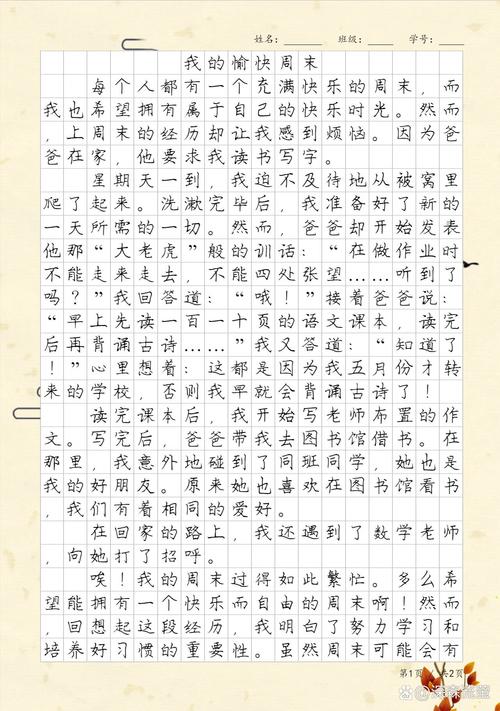 姓名：______ 班级：______ 学号：______
我的愉快周末
每个人都有一个充满快乐的周末，而
我也希望拥有属于自己的快乐时光。然而
，上周末的经历却让我感到烦恼。因为爸
爸在家，他要求我读书写字。
星期天一到，我迫不及待地从被窝里
爬了起来。洗漱完毕后，我准备好了新的
一天所需的一切。然而，爸爸却开始发表
他那“大老虎”般的训话：“在做作业时
不能走来走去，不能四处张望……听到了
吗？”我回答道：“哦！”接着爸爸说：
“早上先读一百一十页的语文课本，读完
后再背诵古诗……”我又答道：“知道了
！”心里想着：这都是因为我五月份才转
来的学校，否则我早就会背诵古诗了！
读完课本后，我开始写老师布置的作
文。写完后，爸爸带我去图书馆借书。在
那里，我意外地碰到了同班同学，她也是
我的好朋友。原来她也喜欢在图书馆看书
，我们有着相同的爱好。
在回家的路上，我还遇到了数学老师
，向她打了招呼。
唉！我的周末过得如此繁忙。多么希
望能拥有一个快乐而自由的周末啊！然而
，回想起这段经历，我明白了努力学习和
培养好习惯的重要性。虽然周末可能会有
第1页 / 共2页